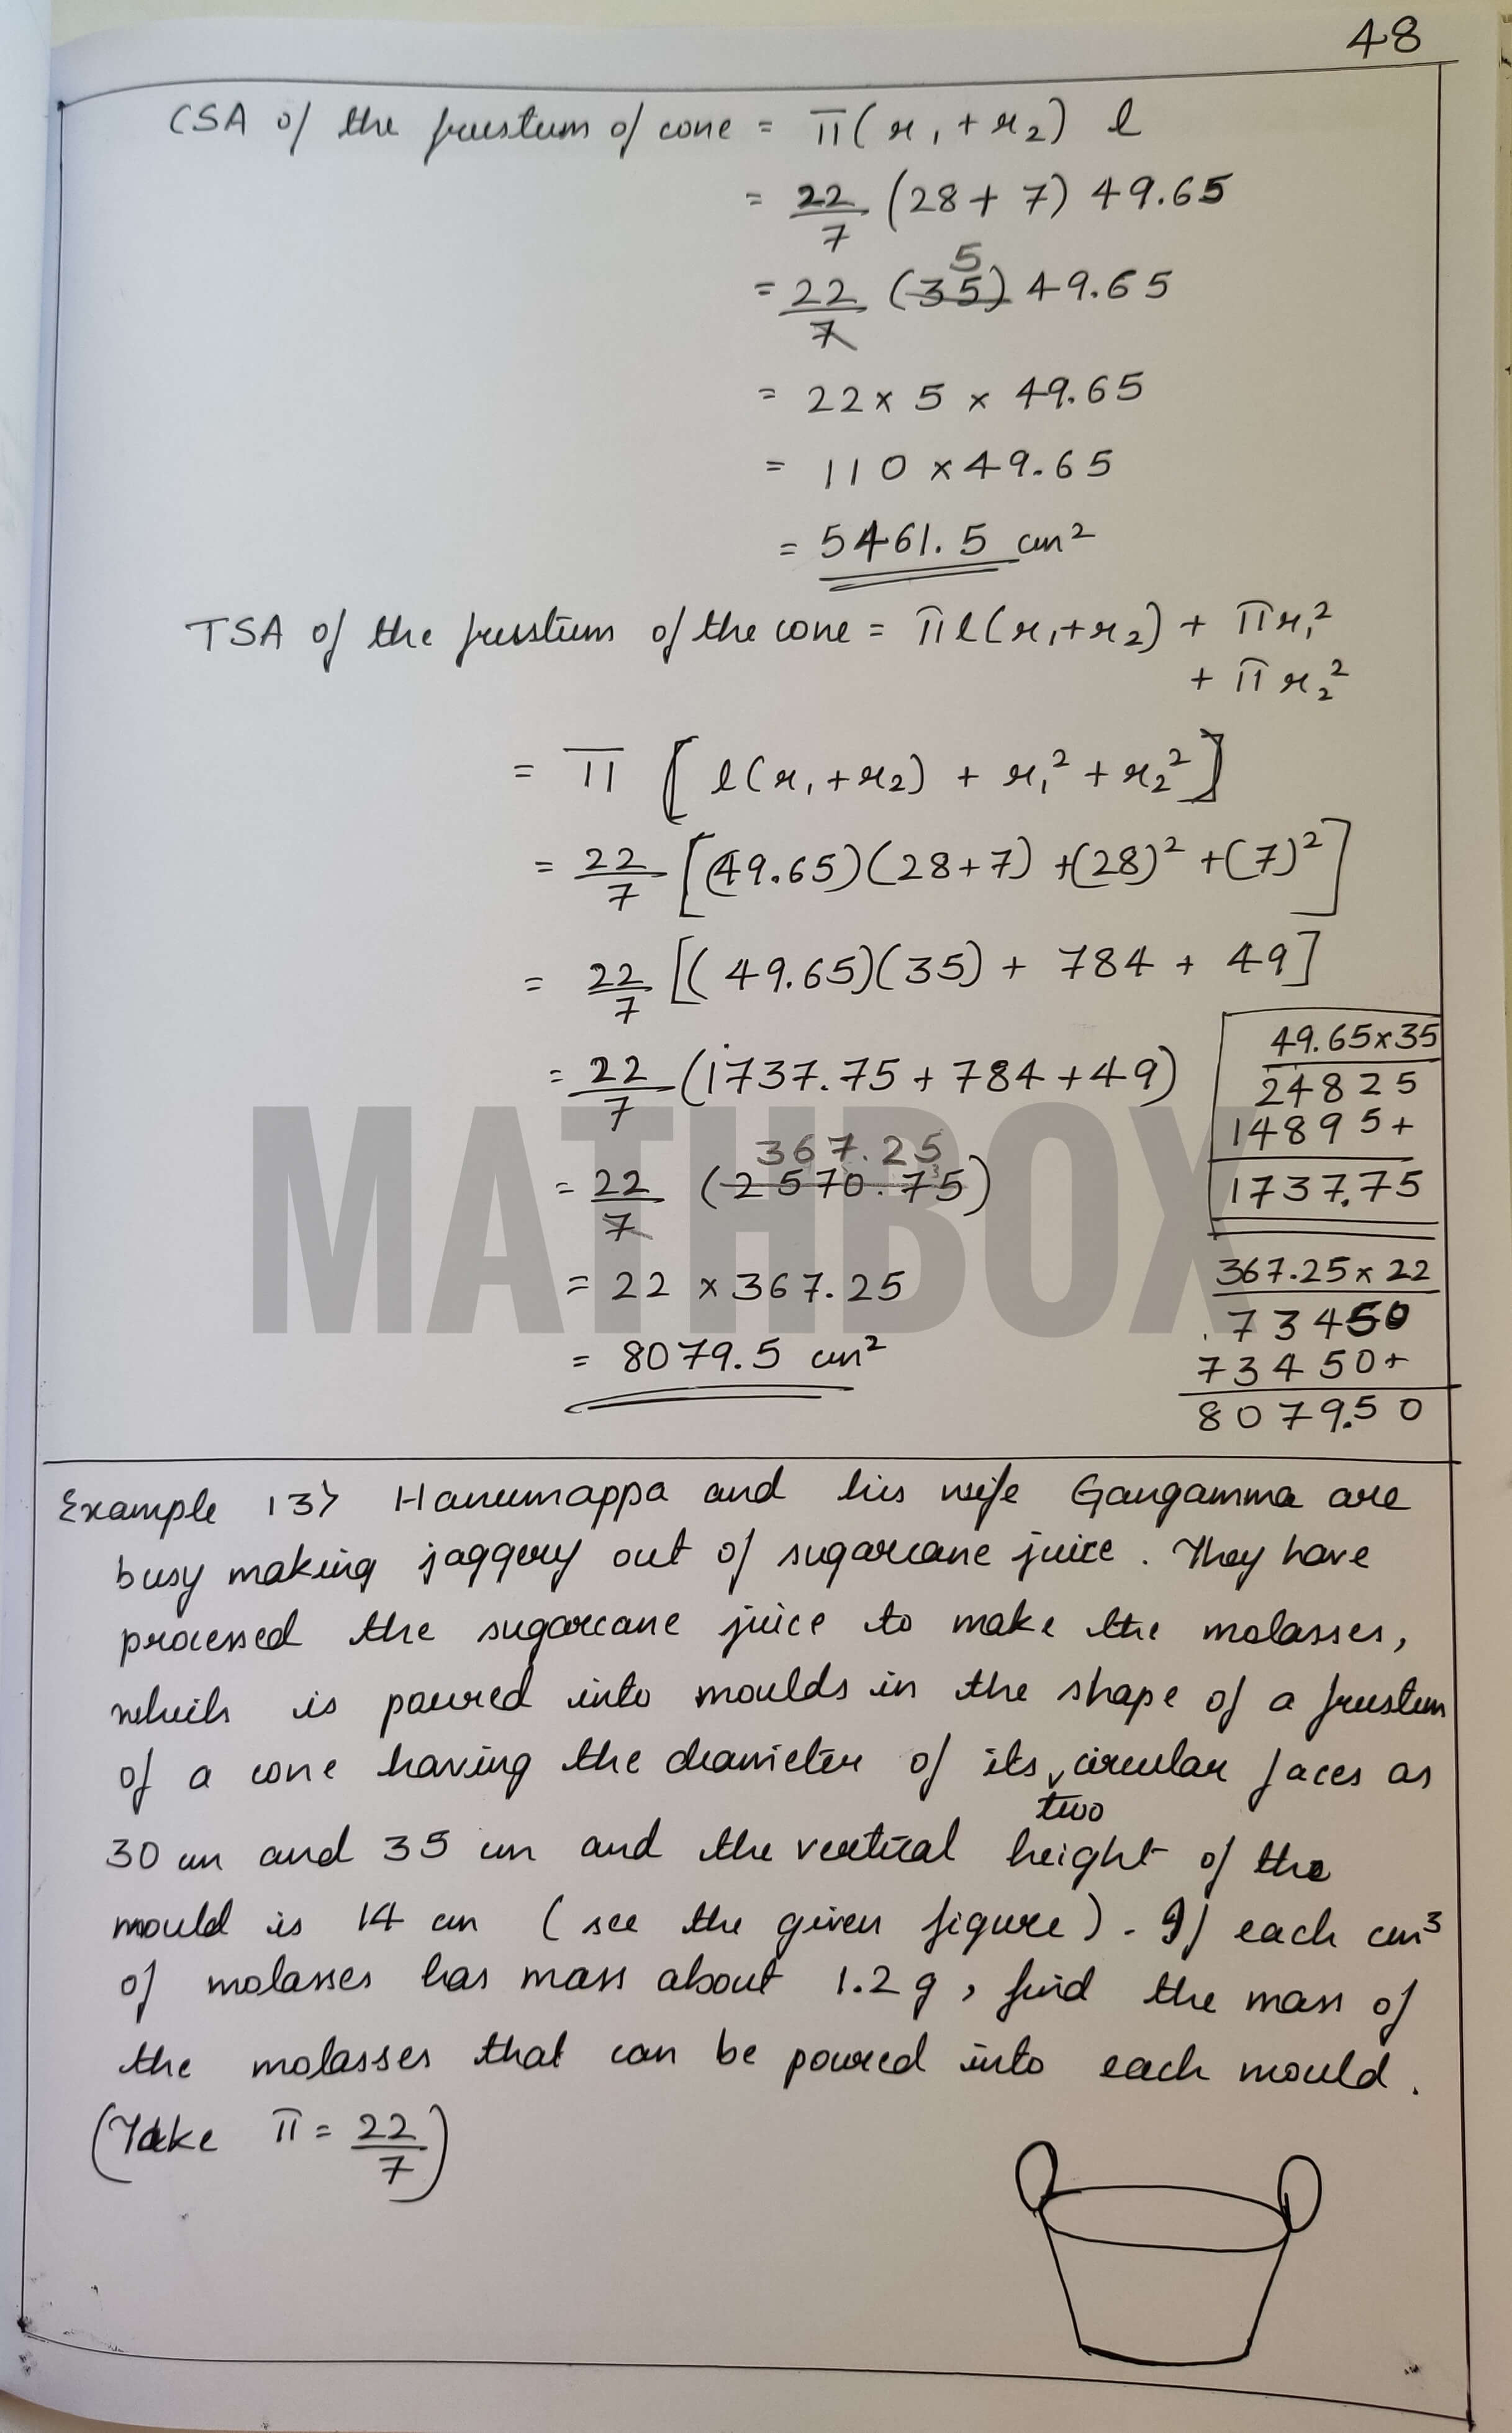 48
CSA of the frustum of cone = π(r₁ + r₂) l
= 22/7 (28 + 7) 49.65
5
= 22/7 (35) 49.65
= 22 × 5 × 49.65
= 110 × 49.65
= 5461.5 cm²
TSA of the frusstum of the cone = πl(r₁+r₂) + πr₁²
+ πr₂²
= π [l(r₁+r₂) + r₁² + r₂²]
= 22/7 [(49.65)(28+7) +(28)² +(7)²]
= 22/7 [(49.65)(35) + 784 + 49]
= 22/7 (1737.75 + 784 + 49)
367.25
= 22/7 (2570.75)
= 22 × 367.25
= 8079.5 cm²
49.65×35
24825
14895+
1737.75
367.25×22
73450
73450+
8079.50
MATHBOX
Example 13> Hanumappa and his wife Gangamma are
busy making jaggery out of sugarcane juice. They have
processed the sugarcane juice to make the molasses,
which is poured into moulds in the shape of a frustum
of a cone having the diameter of its two circular faces as
30 cm and 35 cm and the vertical height of the
mould is 14 cm (see the given figure). If each cm³
of molasses has mass about 1.2 g, find the mass of
the molasses that can be poured into each mould.
(Take π = 22/7)